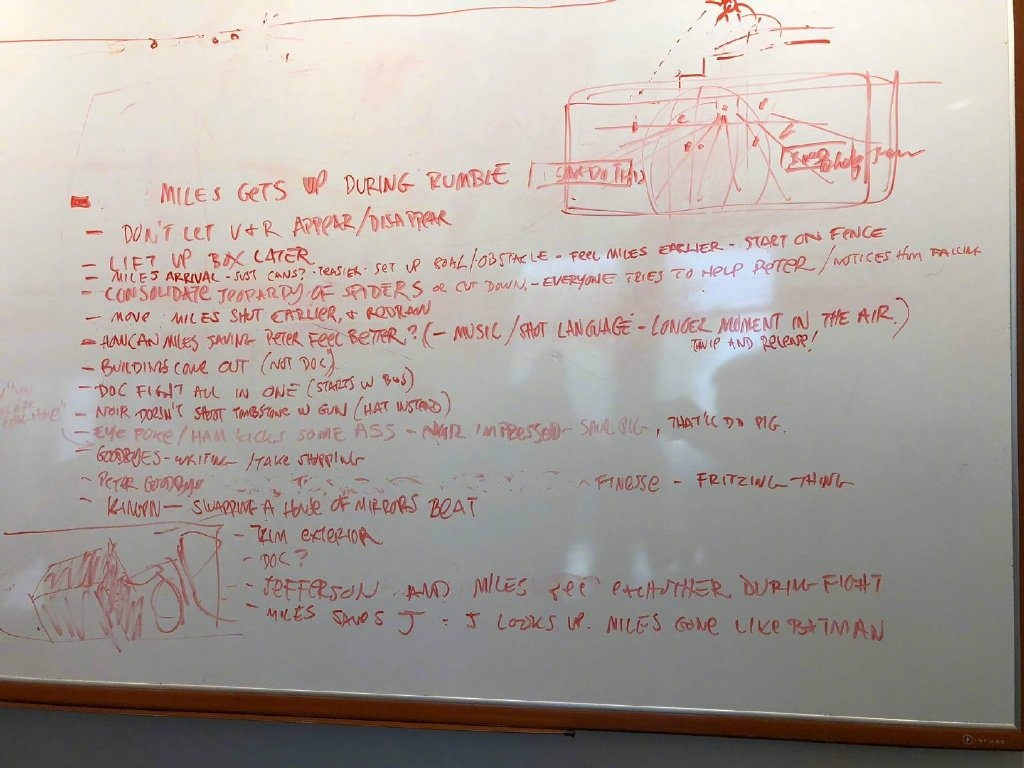 MILES GETS UP DURING RUMBLE
CAN DO THIS
- DON'T LET V+R APPEAR/DISAPPEAR
- LIFT UP BOX LATER
- MILES ARRIVAL - JUST CANS? - TEASIER - SET UP GOAL/OBSTACLE - FEEL MILES EARLIER - START ON FENCE
- CONSOLIDATE JEOPARDY OF SPIDERS OR CUT DOWN, - EVERYONE TRIES TO HELP PETER / NOTICES HIM FALLING
- MOVE MILES SHOT EARLIER, +
- HOW CAN MILES SAVING PETER FEEL BETTER? (- MUSIC / SHOT LANGUAGE - LONGER MOMENT IN THE AIR.)
THWIP AND RELEASE!
- BUILDINGS COME OUT (NOT DOC).
- DOC FIGHT ALL IN ONE (STARTS W BUS)
- NOIR DOESN'T SHOOT TOMBSTONE W GUN (HAT INSTEAD)
- EYE POKE / HAM KICKS SOME ASS - NOIR IMPRESSED - SOME PIG, THAT'LL DO PIG.
- GOODBYES - WRITING / TAKE STOPPING
- PETER GOODBYE
- FINESSE - FRITZING THING
- KINGPIN - SWAPPING A HOUSE OF MIRRORS BEAT
- TRIM EXTERIOR
- DOC?
- JEFFERSON AND MILES SEE EACHOTHER DURING FIGHT
- MILES SAVES J - J LOOKS UP. MILES GONE LIKE BATMAN